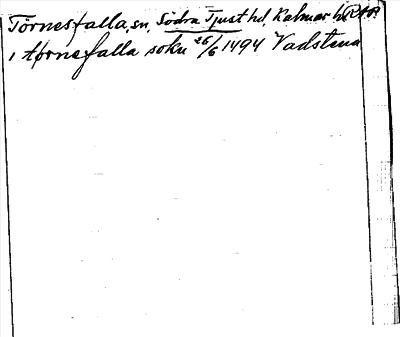 Törnesfalla, sn, Södra Tjust hd, Kalmar l. RAP
i tørnesfalla sokn 26/6 1494 Vadstena